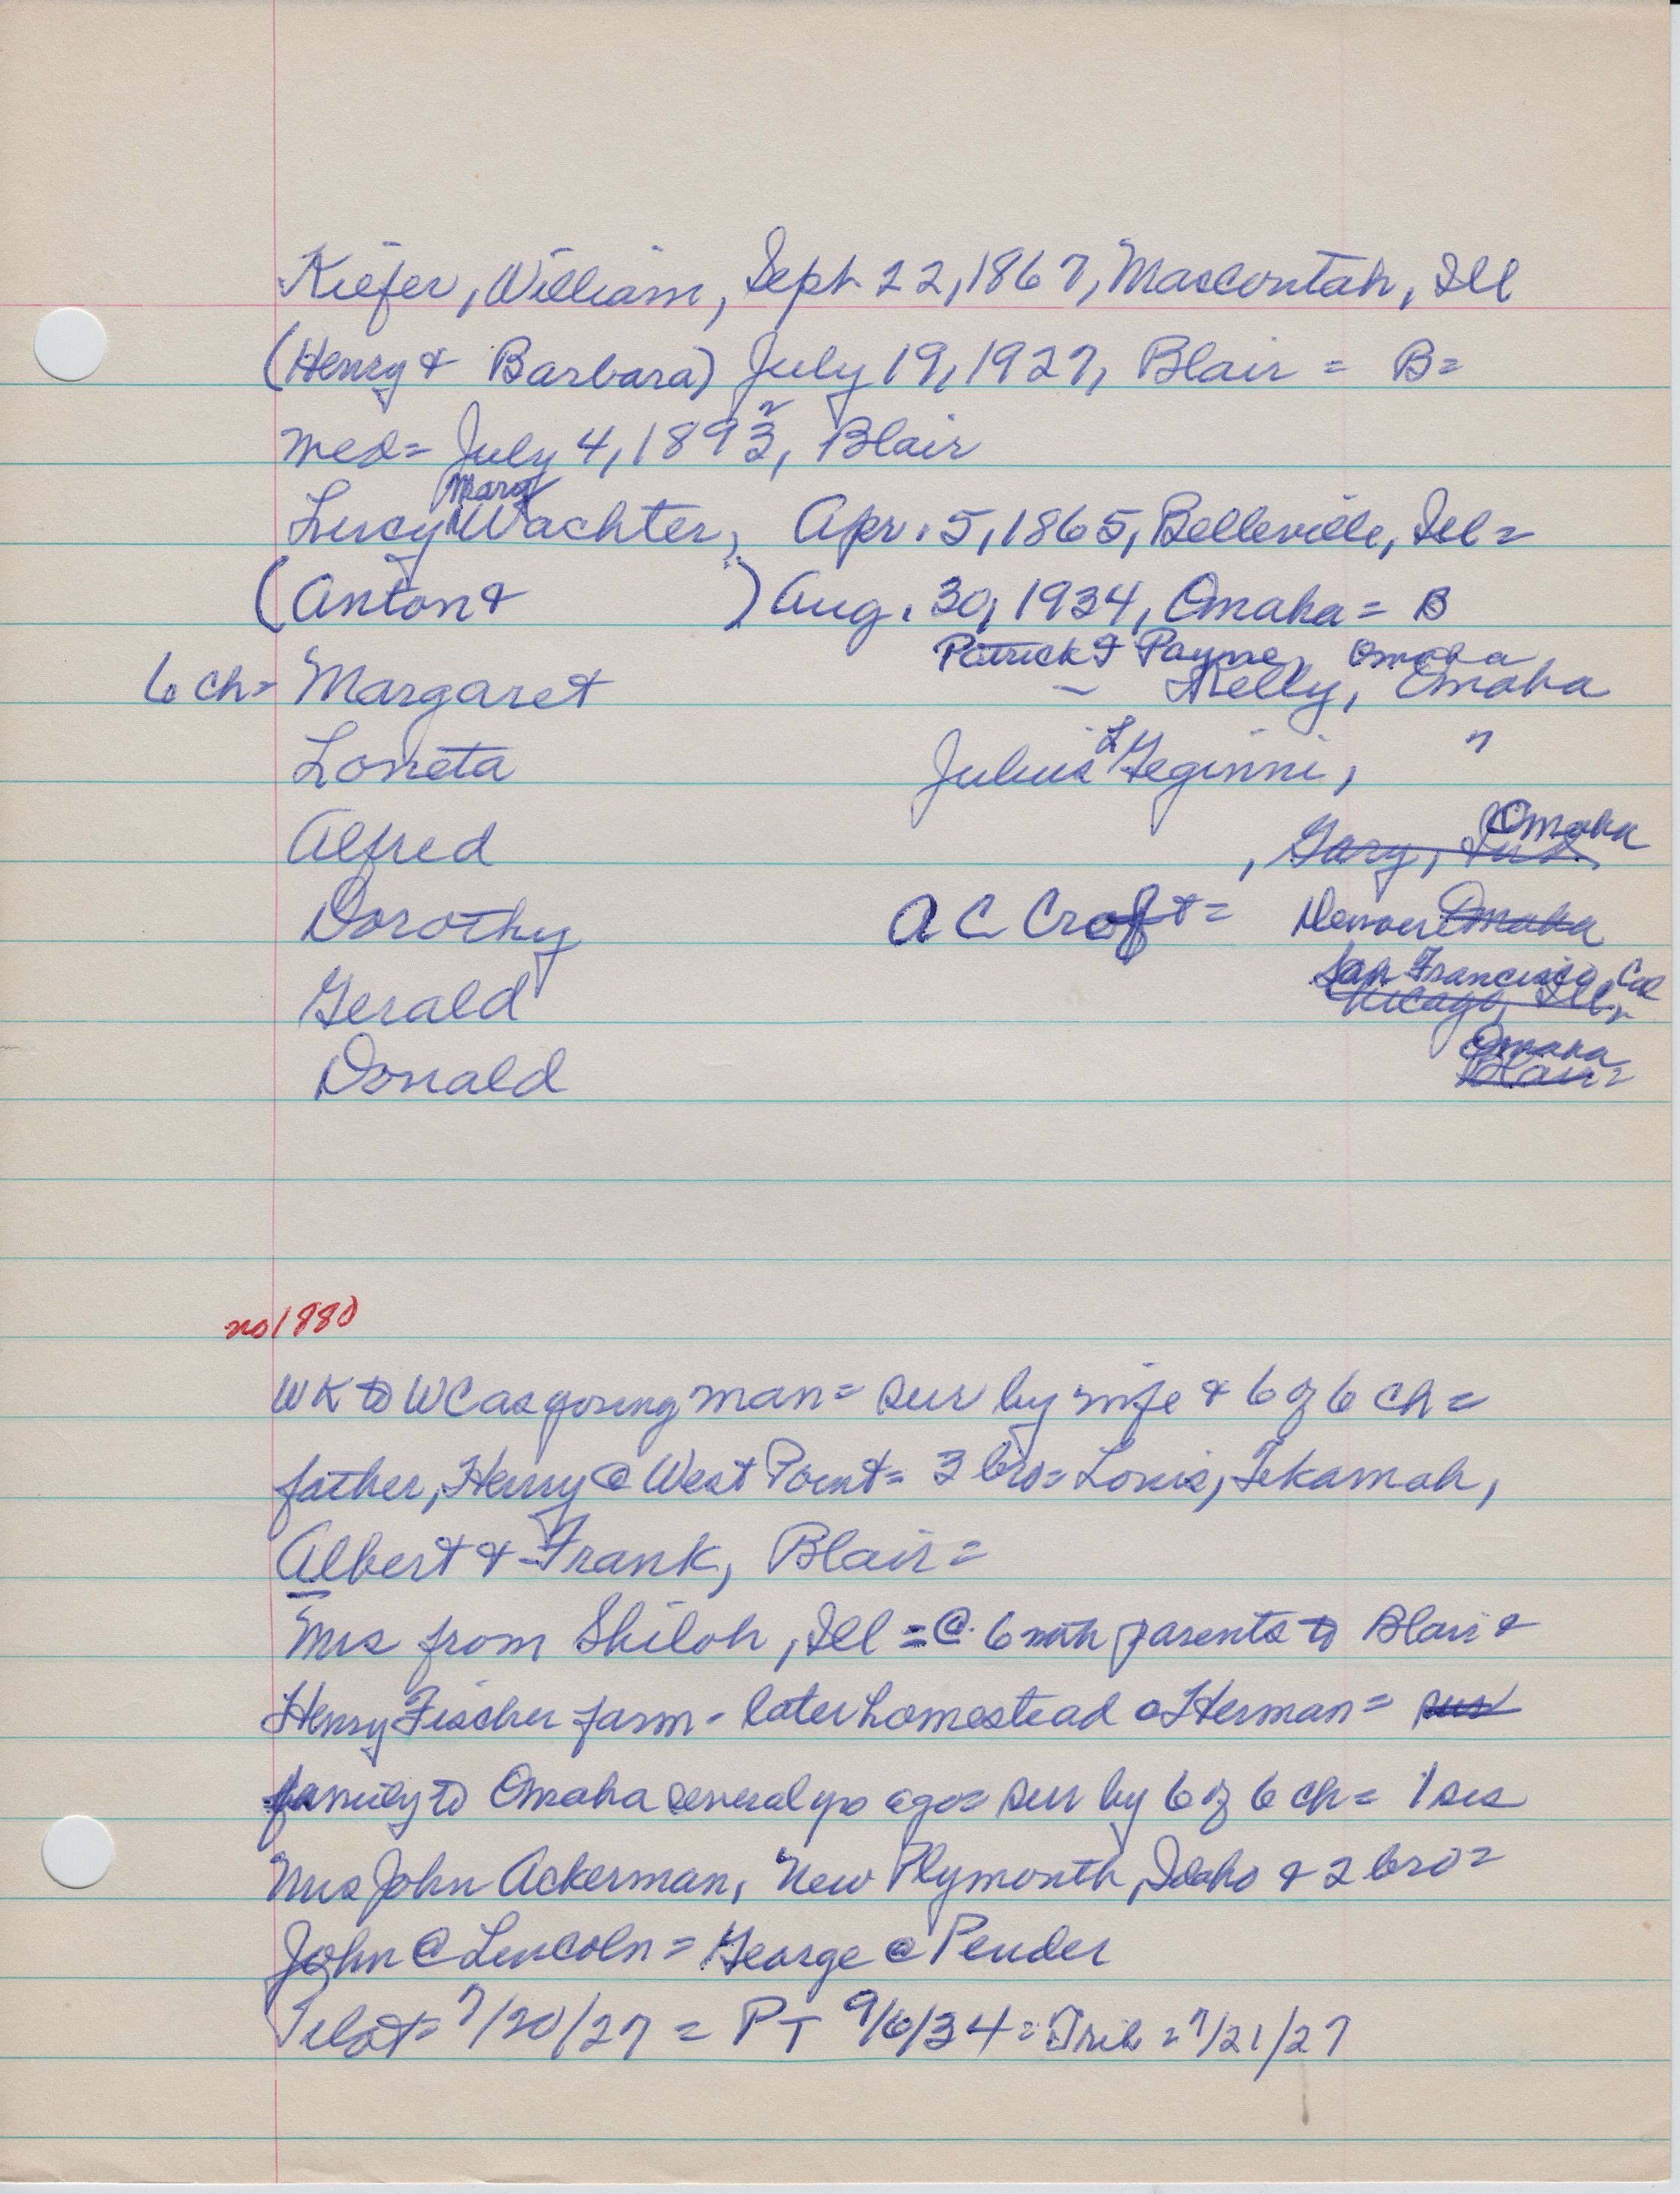 Kiefer, William, Sept 22, 1867, Mascoutah, Ill
(Henry & Barbara) July 19, 1927, Blair = B=
med= July 4, 1893, Blair
2
Mary
Lucy Wachter, Apr. 5, 1865, Belleville, Ill=
(Anton & ) Aug. 30, 1934, Omaha = B
Patrick F Payne, Omaha
6 ch= Margaret – Kelly, Omaha
Loneta Julius L Geginni, "
Alfred , Gary, Ind. Omaha
Dorothy A C Croft = Denver Omaha
San Francisco, Cal
Gerald Chicago, Ill,
Omaha
Donald Blair=
no 1880
WK to WC as young man = sur by wife & 6 of 6 ch =
father, Henry @ West Point = 3 bro = Louis, Tekamah,
Albert & Frank, Blair =
Mrs from Shiloh, Ill = @ 6 with parents to Blair &
Henry Fischer farm - later homestead @ Herman = sur
family to Omaha several yrs ago = sur by 6 of 6 ch = 1 sis
Mrs John Ackerman, New Plymouth, Idaho & 2 bro =
John @ Lincoln = George @ Pender
7/20/27 = PT 9/6/34 = Trib = 7/21/27